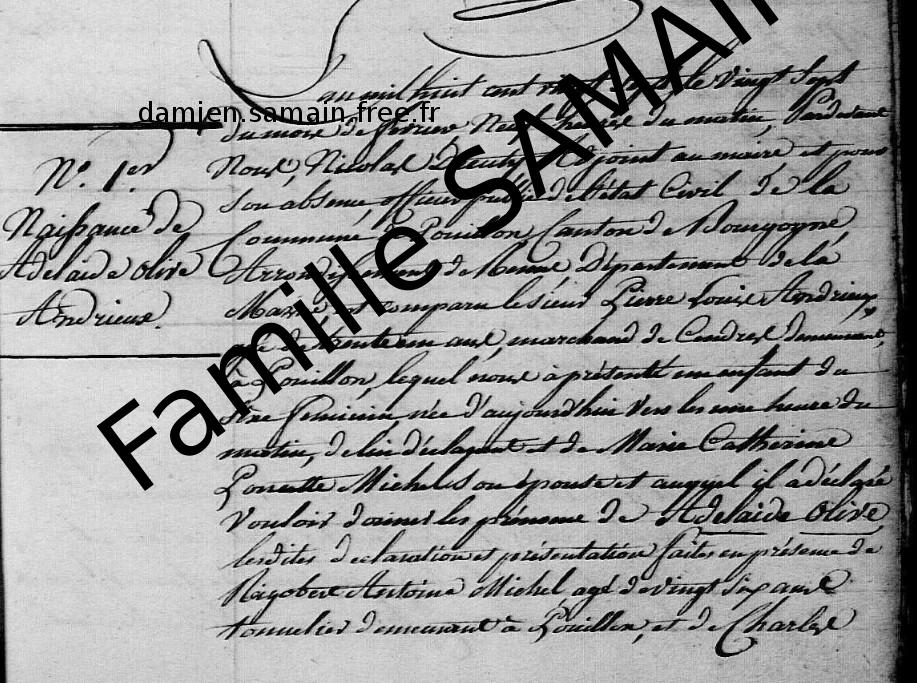 damien.samain.free.fr
Famille SAMAIN
N.° 1.er
Naissance de
Adelaide Olive
Andrieux.
an mil huit cent vingt sept le vingt Sept
du mois de fevrier Neuf heures du matin, Pardevant
Nous, Nicolas adjoint au maire et pour
Son absence officier public de l'état Civil de la
Commune de Pouillon Canton de Bourgogne
Arrondissement de Département de la
Marne est comparu le sieur Pierre Louis Andrieux,
agé de trente un ans, marchand de Cendres demeurant
à Pouillon, lequel nous à présenté un enfant du
Sexe feminin, née d'aujourd'hui vers les une heure du
matin, de lui déclarant et de Marie Catherine
Ponsette Michel son épouse et auquel il a déclaré
Vouloir donner les prénoms de Adelaide Olive,
lesdites déclaration et présentation faites en présence de
Rigobert Antoine Michel agé de vingt six ans
tonnelier demeurant à Pouillon, et de Charles